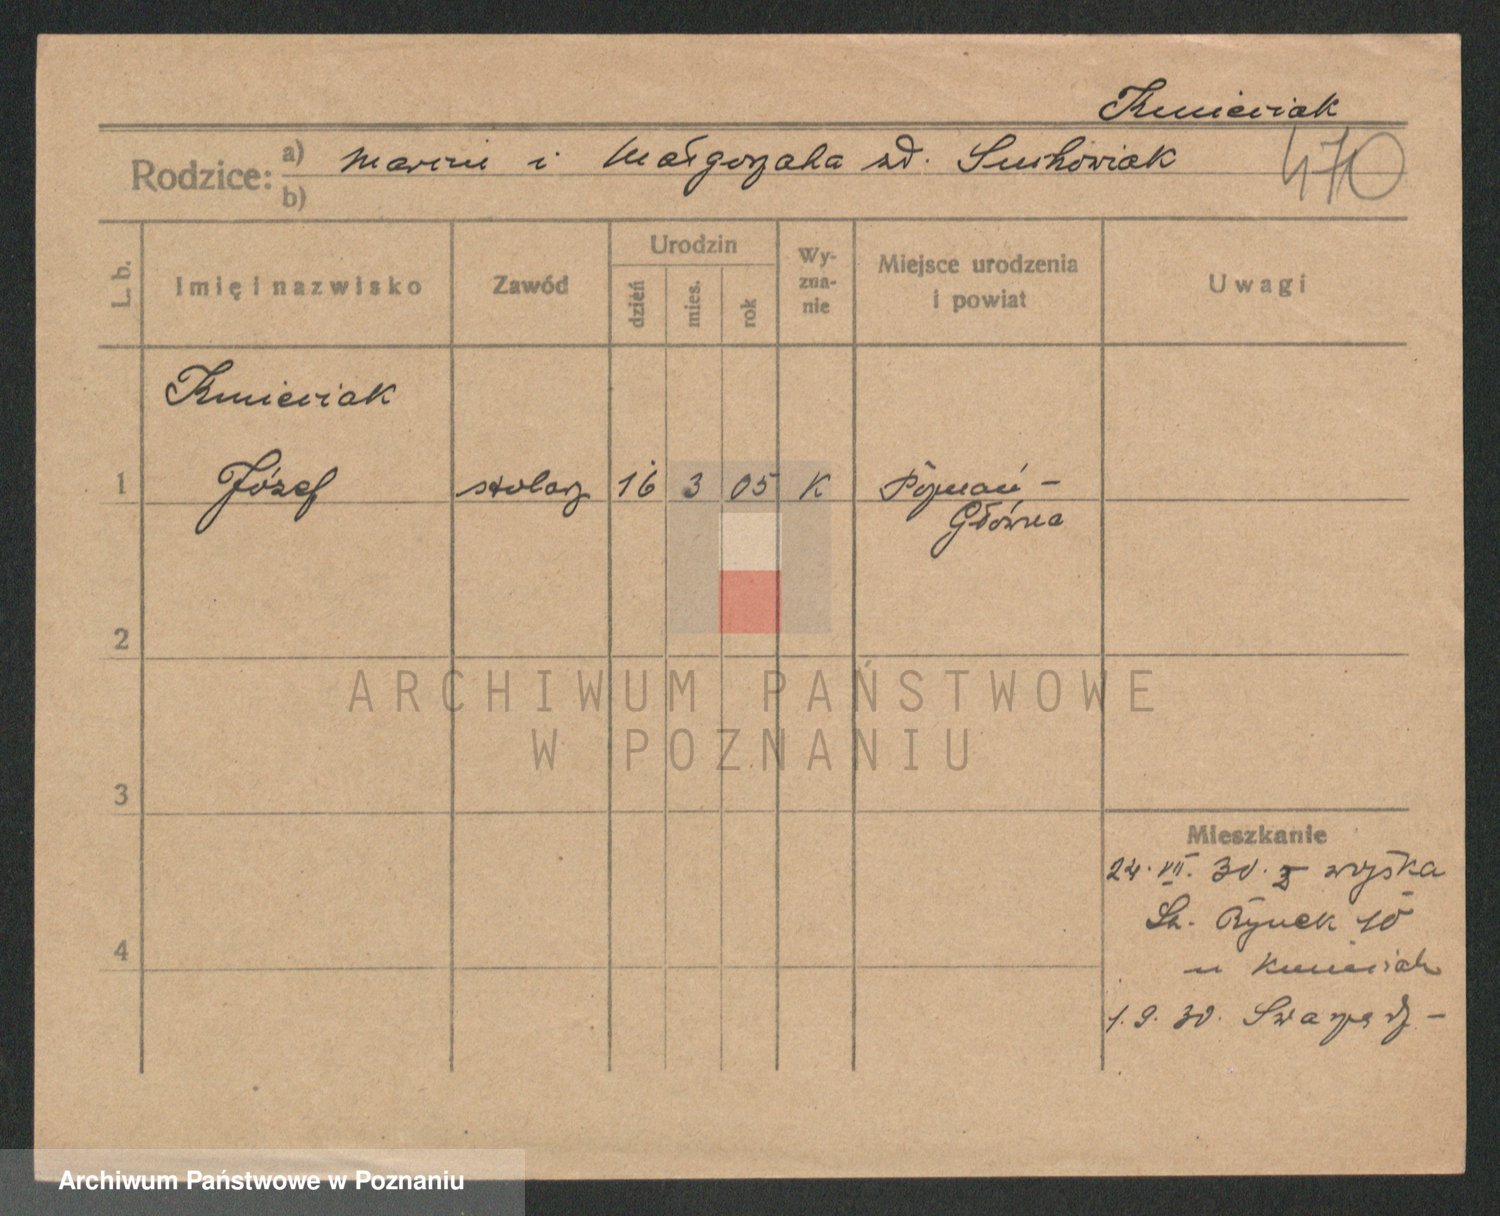 Kmieciak
Rodzice: a) Marcin i Małgorzata zd. Suchowiak
470
b)
L. b. Imię i nazwisko Zawód Urodzin dzień mies. rok Wy-zna-nie Miejsce urodzenia i powiat Uwagi
Kmieciak
1 Józef stolarz 16 3 05 K Poznań -
Główna
2
ARCHIWUM PAŃSTWOWE
W POZNANIU
3
Mieszkanie
24. VII. 30. z wojska
St. Rynek 10
4
u Kmieciak
1. 9. 30. Swarzędz -
Archiwum Państwowe w Poznaniu